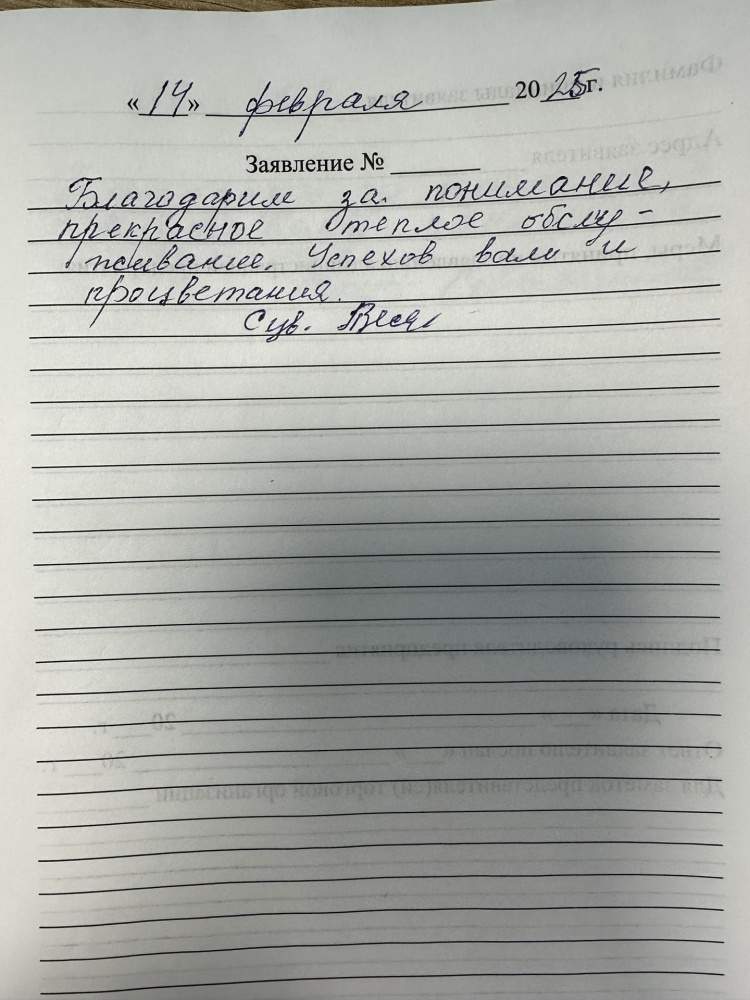 «14» февраля 2025г.
Заявление № ________
Благодарим за понимание,
прекрасное теплое обслу-
живание. Успехов вам и
процветания.